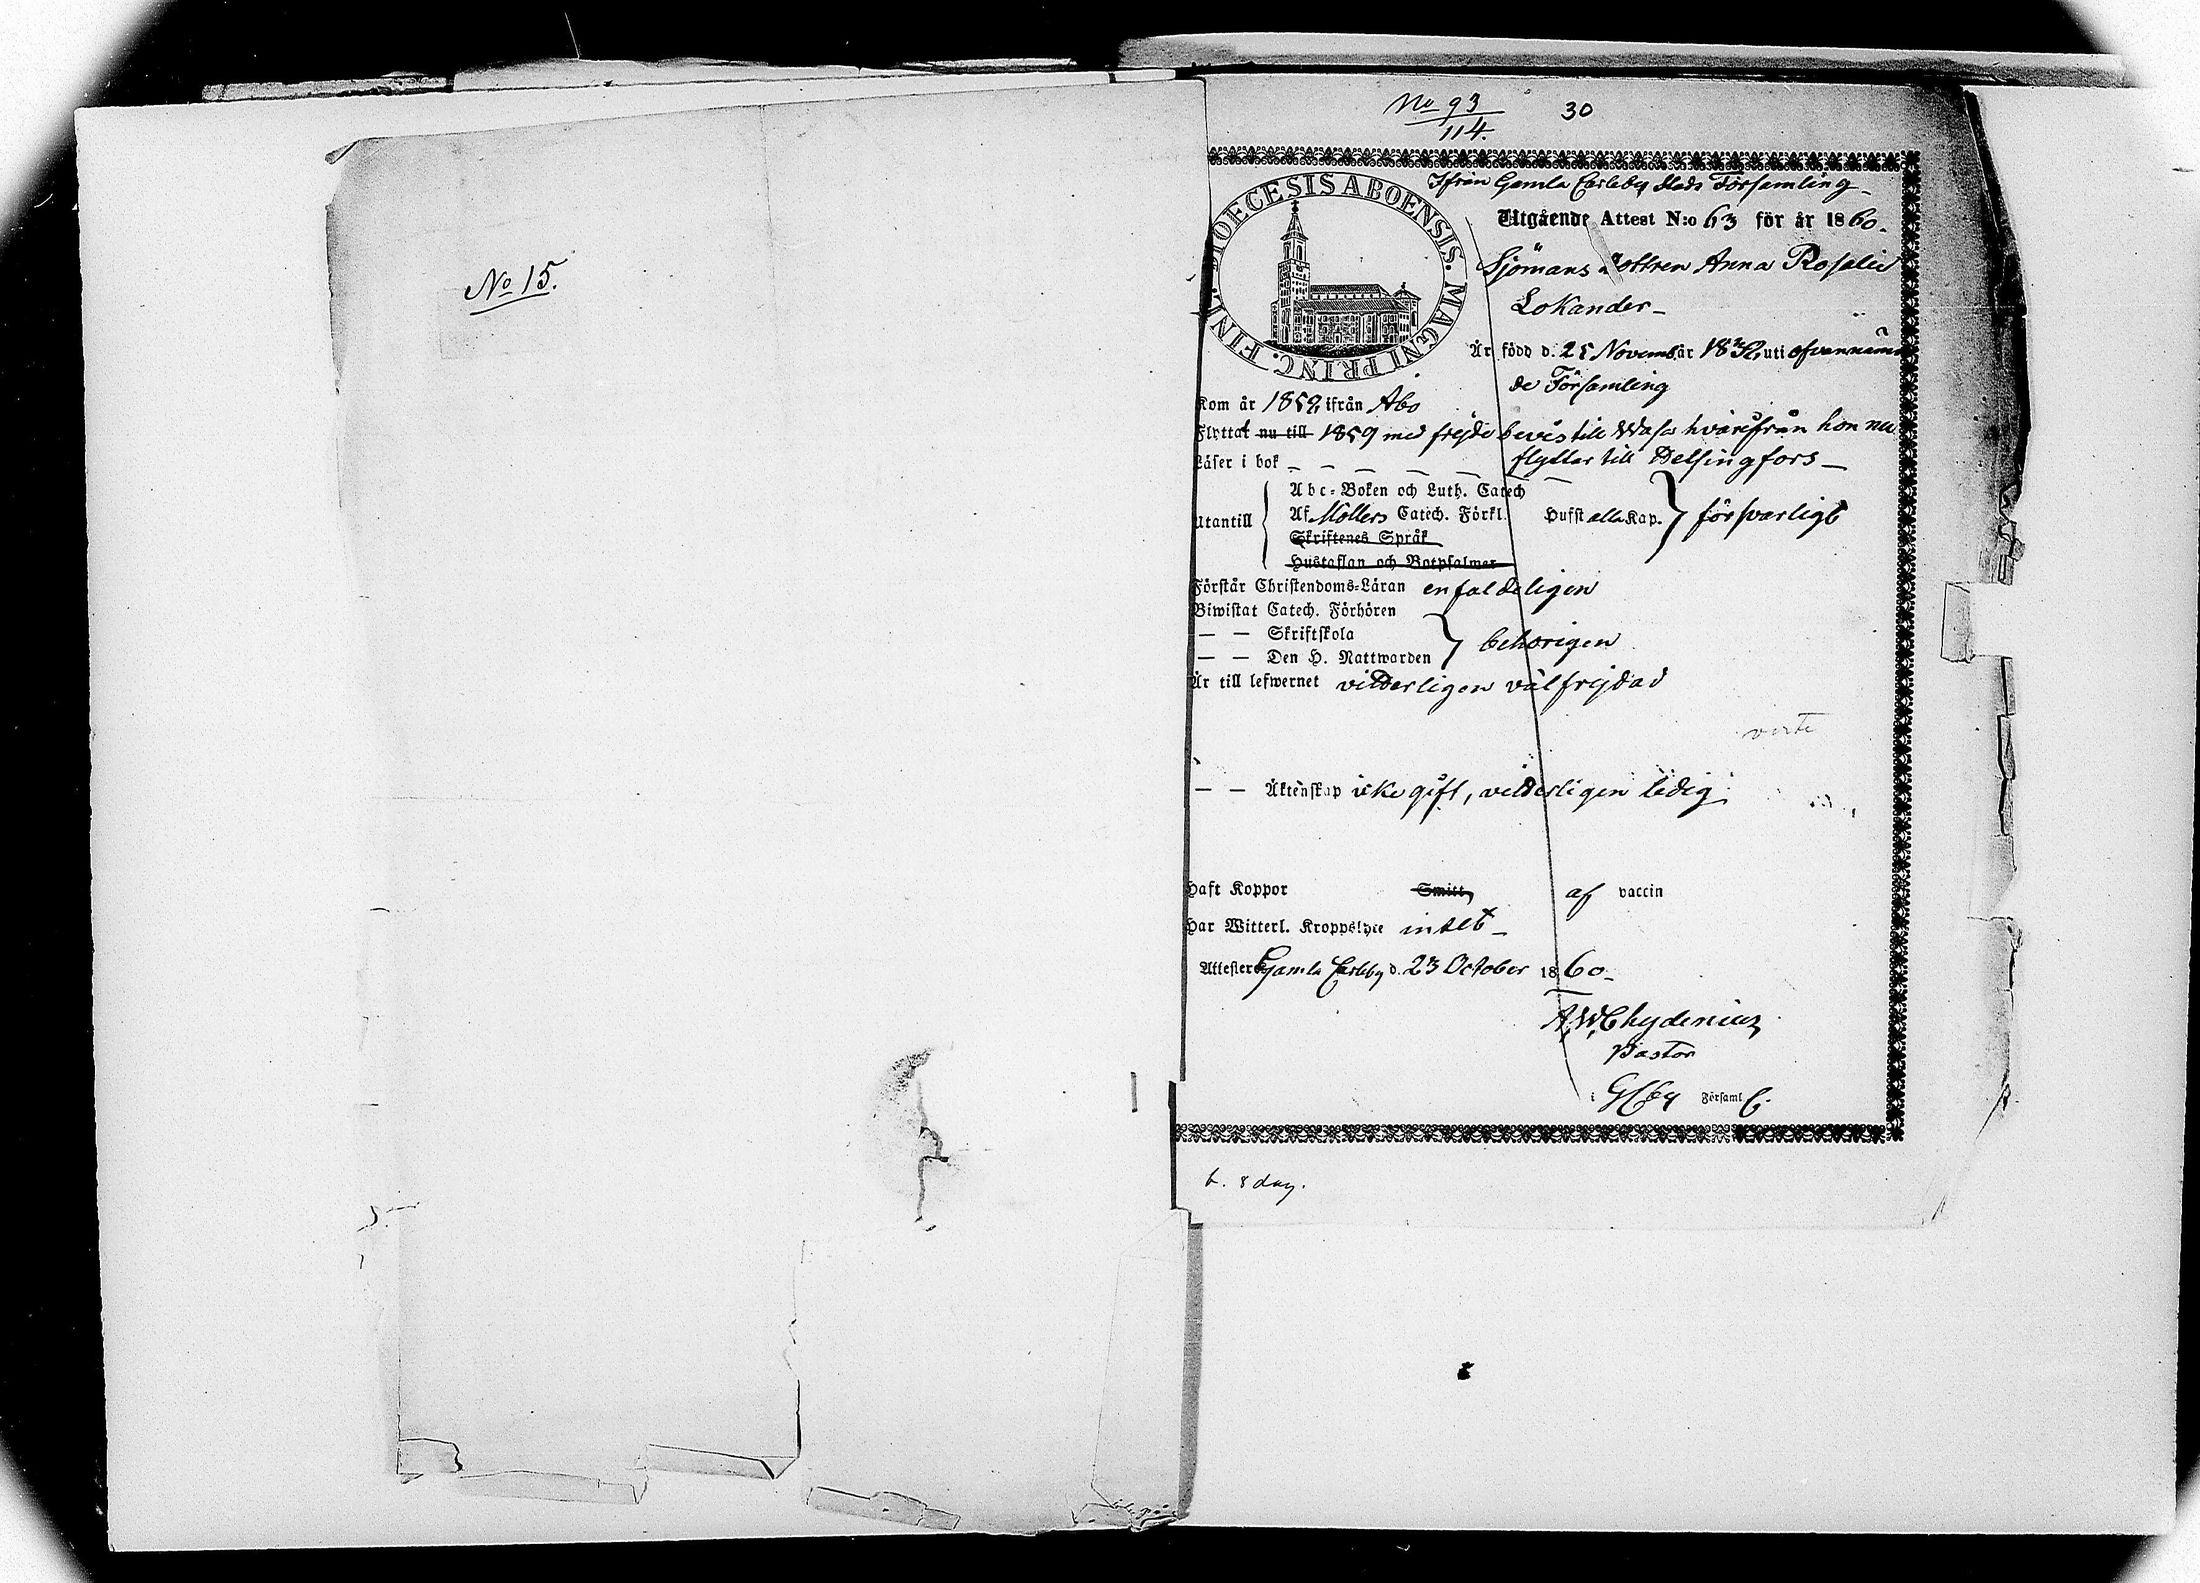 No 15.
No 93
114.
30
DIOECESIS ABOENSIS. MAGNI PRINC. FINL.
Ifrån Gamla Carleby stads Församling
Utgående Attest N:o 63 för år 1860.
Sjömans Dottren Anna Rosalie
Lokander
Är född d. 25 Novemb. år 1832, uti ofvannämn
de Församling
Kom år 1859 ifrån Åbo
Flyttat nu till 1859 med frejdebevis till Wasa hvarifrån hon nu
Läser i bok flyttar till Helsingfors
Abc-Boken och Luth. Catech
Utantill Af Möllers Catech. Förkl. Husst alla Kap. försvarligt
Skriftenes Språk
Hustaflan och Botpsalmer
Förstår Christendoms-Läran enfaldeligen
Biwistat Catech. Förhören
— — Skriftskola behörigen
— — Den H. Nattwarden
Är till lefwernet vitterligen välfrejdad
verte
— — Äktenskap icke gift, vitterligen ledig
Haft Koppor Smitt, af vaccin
Har Witterl. Kroppslyte intet
Attesterar Gamla Carleby d. 23 October 1860
A.W. Chydenius
Pastor
i GCby Församl
b. 8 day.